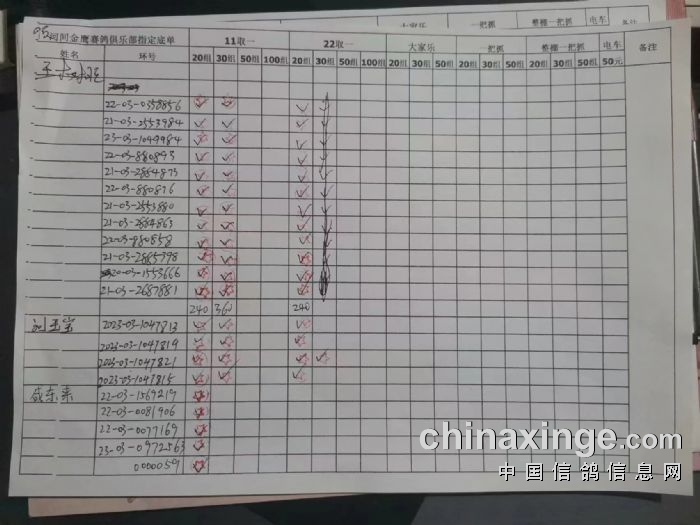 大家乐 一把抓 整棚一把抓 电车 备注
河间金鹰赛鸽俱乐部指定底单 11取一 22取一 大家乐 一把抓 整棚一把抓 电车 备注
姓名 环号 20组 30组 50组 100组 20组 30组 50组 100组 20组 30组 50组 20组 30组 50组 20组 30组 50组 50元
22-03-0358856
21-03-2553984
23-03-1049984
22-03-880893
21-03-2884873
22-03-880876
21-03-2553880
21-03-2884863
22-03-880858
21-03-2885798
20-03-1553666
21-03-2687881
240 360 240
刘玉宝 2023-03-1047813
2023-03-1047819
2023-03-1047821
2023-03-1047815
盛东来 22-03-1569219
22-03-0081906
22-03-0077169
23-03-0972563
0000059
chinaxinge.com
中国信鸽信息网